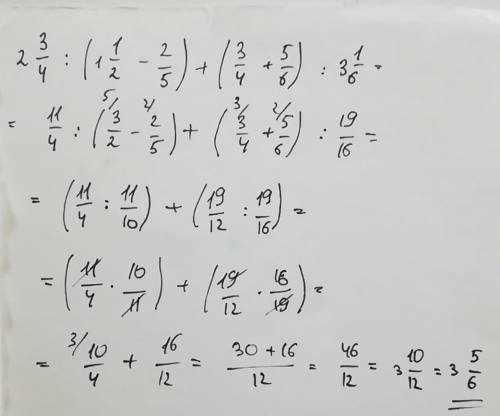 2 3/4 : (1 1/2 - 2/5) + (3/4 + 5/6) : 3 1/6 =
= 11/4 : (5/ 3/2 - 2/ 2/5) + (3/ 3/4 + 2/ 5/6) : 19/16 =
= (11/4 : 11/10) + (19/12 : 19/16) =
= (11/4 · 10/11) + (19/12 · 16/19) =
= 3/ 10/4 + 16/12 = 30+16/12 = 46/12 = 3 10/12 = 3 5/6